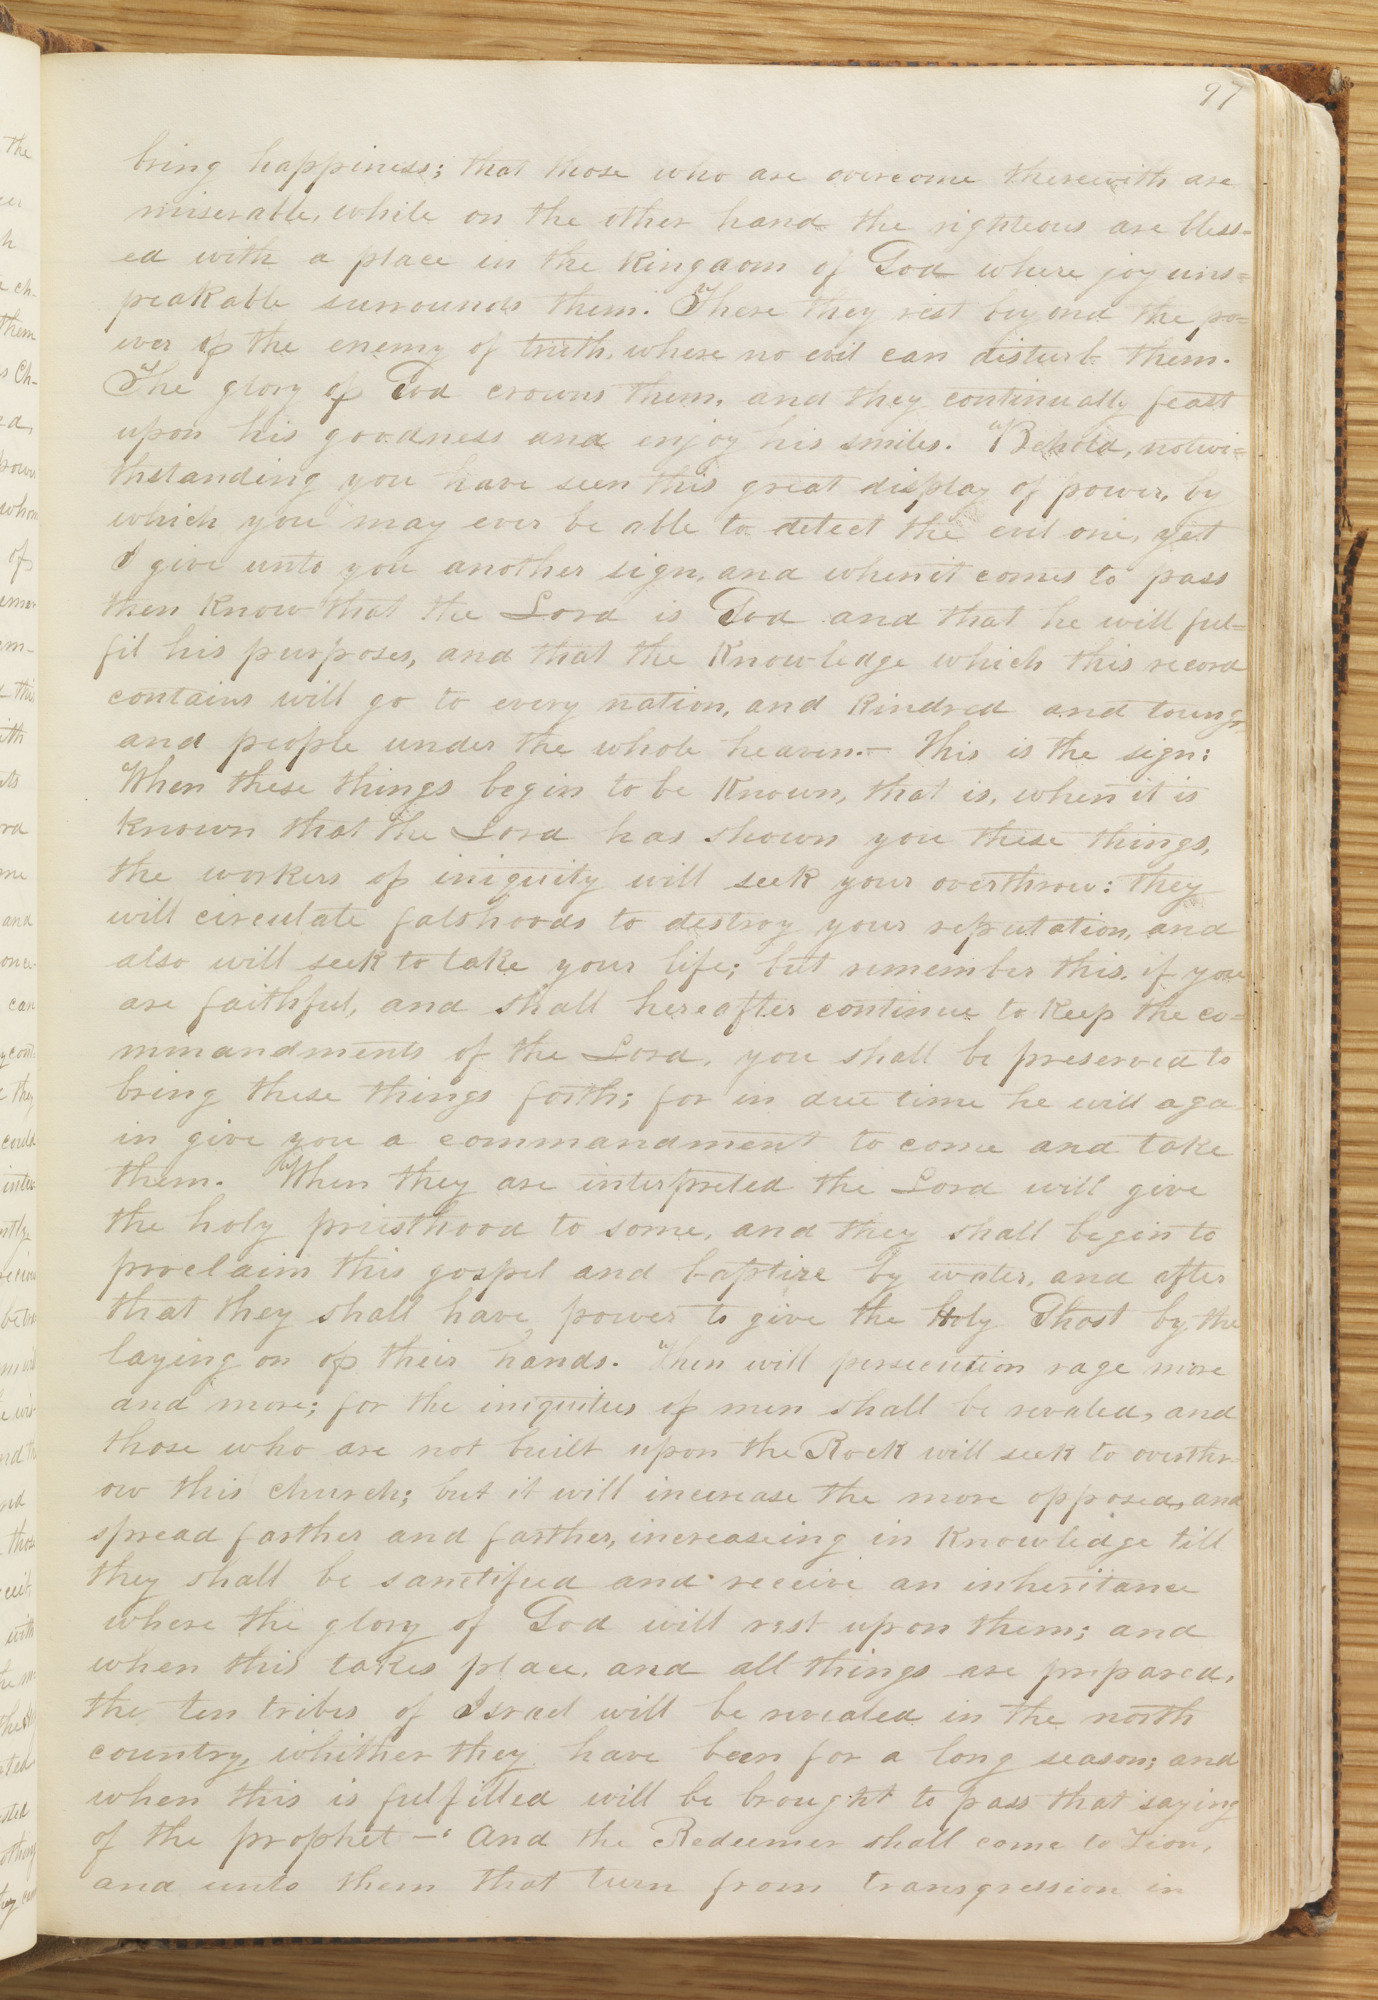 97
bring happiness; that those who are overcome therewith are
miserable, while on the other hand the righteous are bless=
ed with a place in the kingdom of God where joy uns=
peakable surrounds them. There they rest beyond the po=
wer of the enemy of truth, where no evil can disturb them.
The glory of God crowns them, and they continually feast
upon his goodness and enjoy his smiles. "Behold, notwi=
thstanding you have seen this great display of power, by
which you may ever be able to detect the evil one, yet
I give unto you another sign, and when it comes to pass
then know that the Lord is God and that he will ful=
fil his purposes, and that the knowledge which this record
contains will go to every nation, and kindred and toung,
and people under the whole heaven.— This is the sign:
When these things begin to be known, that is, when it is
known that the Lord has shown you these things,
the workers of iniquity will seek your overthrow: they
will circulate falshoods to destroy your reputation, and
also will seek to take your life; but remember this, if you
are faithful, and shall hereafter continue to keep the co=
mmandments of the Lord, you shall be preserved to
bring these things forth; for in due time he will aga
in give you a commandment to come and take
them. When they are interpreted the Lord will give
the holy priesthood to some, and they shall begin to
proclaim this gospel and baptize by water, and after
that they shall have power to give the Holy Ghost by the
laying on of their hands. Then will persecution rage more
and more; for the iniquities of men shall be revealed, and
those who are not built upon the Rock will seek to overthr
ow this church; but it will increase the more opposed, and
spread farther and farther, increaseing in knowledge till
they shall be sanctified and receive an inheritance
where the glory of God will rest upon them; and
when this takes place, and all things are prepared,
the ten tribes of Israel will be revealed in the north
country, whither they have been for a long season; and
when this is fulfilled will be brought to pass that saying
of the prophet —"And the Redeemer shall come to Zion,
and unto them that turn from transgression in